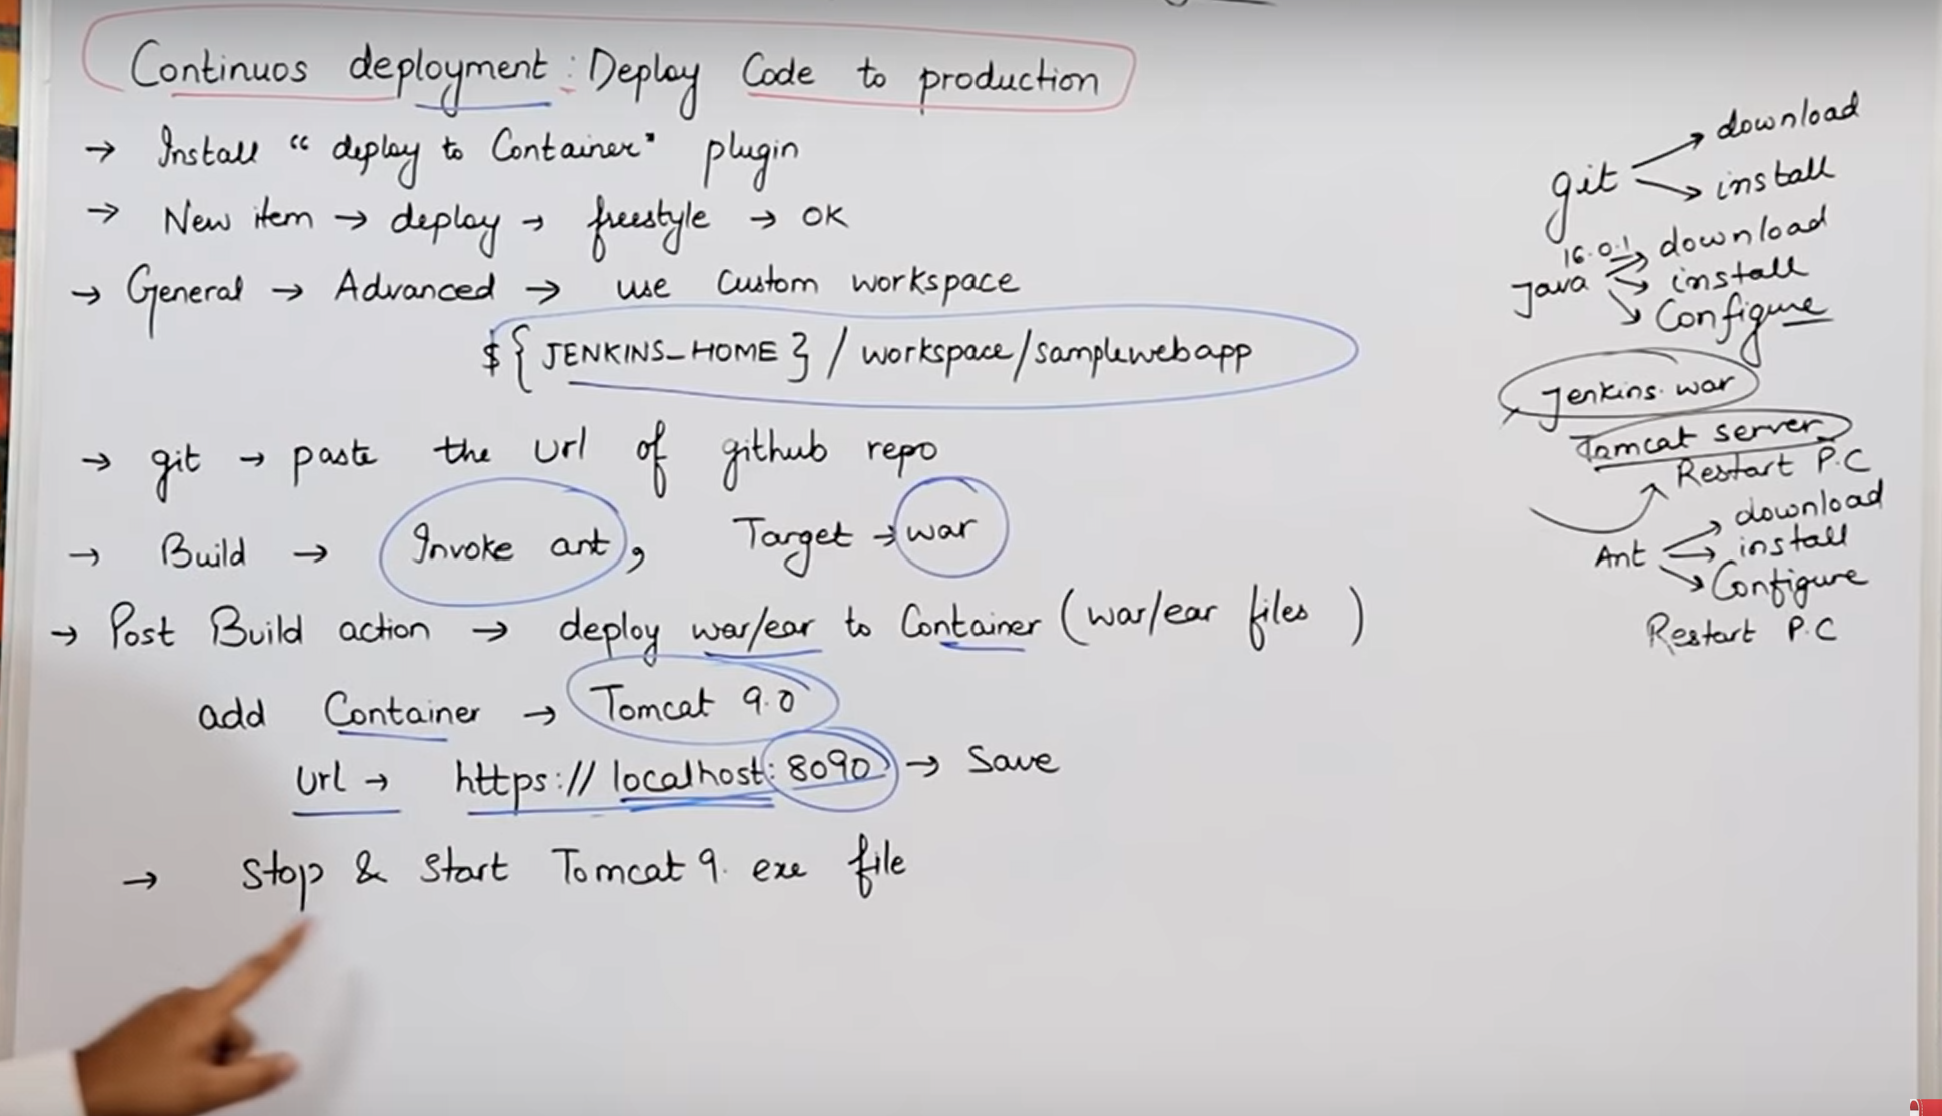 Continuos deployment : Deploy Code to production
→ Install “ deploy to Container" plugin
→ New item → deploy → freestyle → OK
→ General → Advanced → use Custom workspace
${JENKINS_HOME} / workspace/samplewebapp
→ git → paste the url of github repo
→ Build → Invoke ant, Target → war
→ Post Build action → deploy war/ear to Container (war/ear files )
add Container → Tomcat 9.0
url → https://localhost:8090 → Save
→ Stop & Start Tomcat 9. exe file
git → download
→ install
16.0.1
Java → download
→ install
→ Configure
Jenkins.war
Tomcat server
Restart P.C
Ant → download
→ install
→ Configure
Restart P.C